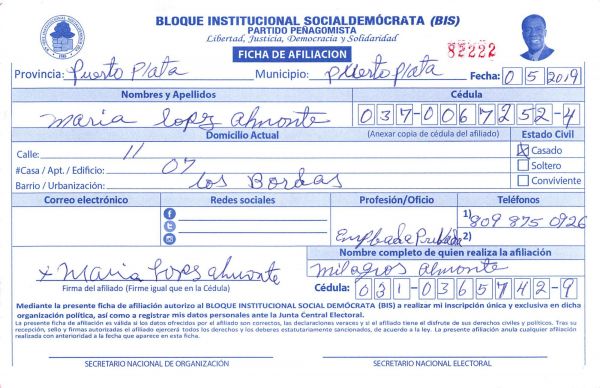 BLOQUE INSTITUCIONAL SOCIALDEMÓCRATA (BIS)
PARTIDO PEÑAGOMISTA
Libertad, Justicia, Democracia y Solidaridad
FICHA DE AFILIACION
82222
Provincia: Puerto Plata Municipio: Puerto Plata Fecha: 05 2019
Nombres y Apellidos Cédula
Maria Lopez Almonte 037-0067252-4
Domicilio Actual (Anexar copia de cédula del afiliado) Estado Civil
Calle: 11 X Casado
#Casa / Apt. / Edificio: 07 Soltero
Barrio / Urbanización: Los Bordas Conviviente
Correo electrónico Redes sociales Profesión/Oficio Teléfonos
1) 809 875 0926
Empleada Privada 2)
Nombre completo de quien realiza la afiliación
x Maria Lopez almonte milagros almonte
Firma del afiliado (Firme igual que en la Cédula) Cédula: 031-0365742-9
Mediante la presente ficha de afiliación autorizo al BLOQUE INSTITUCIONAL SOCIAL DEMÓCRATA (BIS) a realizar mi inscripción única y exclusiva en dicha
organización política, así como a registrar mis datos personales ante la Junta Central Electoral.
La presente ficha de afiliación es válida si los datos ofrecidos por el afiliado son correctos, las declaraciones veraces y si el afiliado tiene el disfrute de sus derechos civiles y políticos. Tras su
recepción, sello y firmas autorizadas el afiliado ejercerá todos los derechos y los deberes estatutariamente sancionados, de acuerdo a la ley. La presente afiliación anula cualquier afiliación
realizada con anterioridad a la fecha que aparece en esta ficha.
SECRETARIO NACIONAL DE ORGANIZACIÓN SECRETARIO NACIONAL ELECTORAL